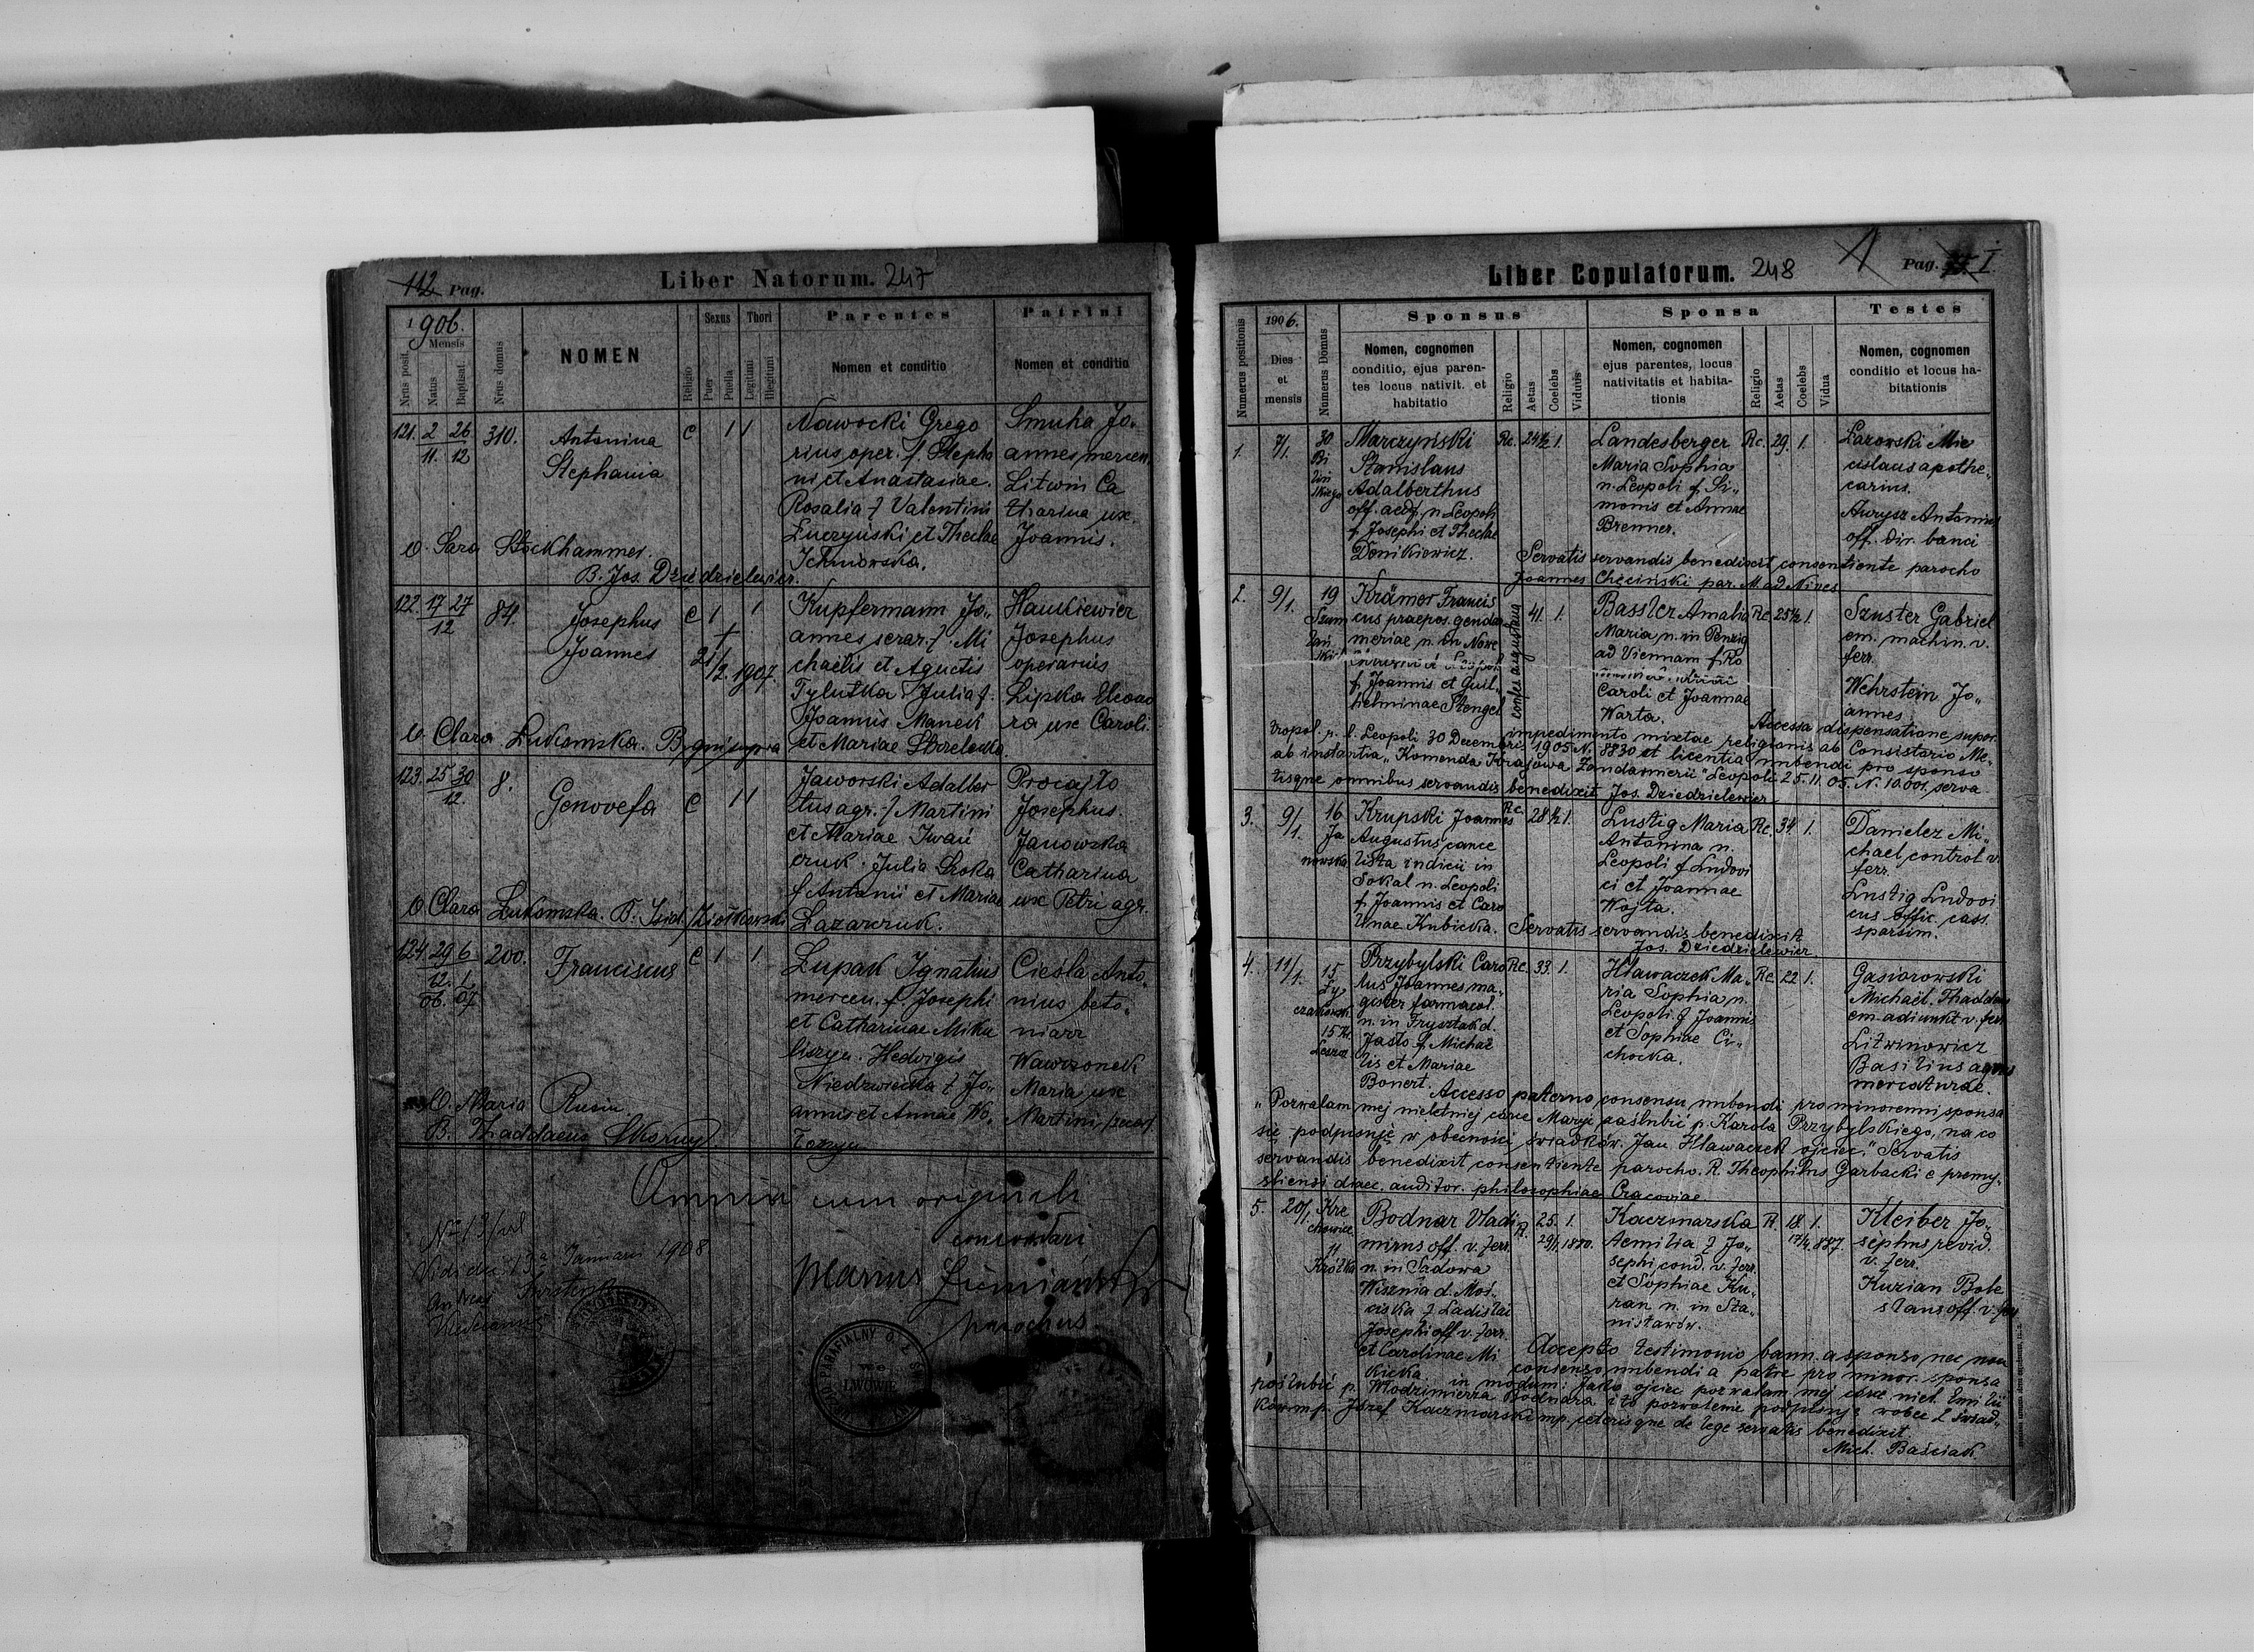 112 Pag.
Liber Natorum. 247
1906.
Mensis
Nrus posit.
Natus
Baptisat
Nrus domus
NOMEN
Religio
Sexus
Puer
Puella
Thori
Legitimi
Illegitimi
Parentes
Nomen et conditio
Patrini
Nomen et conditio
121. 2/11. 26/12 310.
Antonina
Stephania
C 1 1
Nawocki Grego
rius oper. f. Stepha
ni et Anastasiae.
Rosalia f. Valentini
Łuczyński et Theclae
Smuha Jo„
annes mercen.
Litwin Ca
tharina ux.
Joannis.
O. Sara Stockhammer.
B. Jos. Dziedzielewicz.
122. 17 27/12 87.
Josephus
Joannes
C 1 1
† 21/2. 1907.
Kupfermann Jo„
annes serar. f. Mi
chaelis et Agnetis
Tylutka Julia f.
Joannis Manek
et Mariae Strzelecka.
Hankiewicz
Josephus
operarius
Lipka Eleono
ra ux Caroli.
O. Clara Łukomska. B. qui supra
123. 25 30/12. 8.
Genovefa
C 1 1
Jaworski Adalber
tus agr. f. Martini
et Mariae Iwań
czuk. Julia Sroka
f. Antonii et Mariae
Łazarczuk.
Procajło
Josephus.
Janowska
Catharina
ux Petri agr.
O. Clara Łukomska. B. Isid. Ziołkowski
124. 29/12. 06. 6/1. 07 200.
Franciscus
C 1 1
Łupak Ignatius
mercen. f. Josephi
et Catharinae Mika
liszyn. Hedvigis
Niedzwiecka f. Jo„
annis et Annae Wo„
Cieśla Anto„
nius beto„
niarz
Wawrzonek
Maria ux
Martini
O. Maria Rusin
B. Thaddaeus Skorny
Omnia cum originali
concordari
Marius
parochus.
No 13/vd
Vidi die 13a Januarii 1908
LWOWIE
Liber Copulatorum. 248
Pag. I
Numerus positionis
1906.
Dies
et
mensis
Numerus Domus
Sponsus
Nomen, cognomen
conditio, ejus paren-
tes locus nativit. et
habitatio
Religio
Aetas
Coelebs
Viduus
Sponsa
Nomen, cognomen
ejus parentes, locus
nativitatis et habita-
tionis
Religio
Aetas
Coelebs
Vidua
Testes
Nomen, cognomen
conditio et locus ha-
bitationis
1. 7/1. 30
Marczyński
Stanislaus
Adalberthus
off. aedf. n. Leopoli
f. Josephi et Theclae
Donikiewicz.
Rc. 24½ 1.
Landesberger
Maria Sophia
n. Leopoli f. Si„
monis et Annae
Brenner.
Rc. 29. 1.
Łazowski Mie
cislaus apothe„
carius.
Aurysz Antonius
off. dir. banci
Servatis servandis benedixit consentiente parocho
Joannes Chęciński par. M. ad Nives
2. 9/1. 19
Krämer Francis
cus praepos. gendar
meriae n. in Nowe
f. Joannis et Guil„
helminae Stengel
confes. augustana
41. 1.
Bassler Amalia
Maria, n. in Penzig
ad Viennam f. Ro
Caroli et Joannae
Warta.
Rc. 25½ 1.
Szuster Gabriel
em. machin. v.
ferr.
Wehrstein Jo„
annes.
Accessa dispensatione super
impedimento mixtae religionis ab Consistorio Me„
tropol. r. l. Leopoli 30 Decembri 1905 N. 8830 et licentia nubendi pro sponso
ab instantia „Komenda Krajowa Żandarmerii" Leopoli 25.11.05. N. 10.001, serva
tisque omnibus servandis benedixit Jos. Dziedzielewicz
3. 9/1. 16
Ja
nowska
Krupski Joannes
Augustus cance
lista iudicii in
Sokal n. Leopoli
f. Joannis et Caro
linae Kubicka.
Rc. 28½ 1.
Lustig Maria
Antonina n.
Leopoli f. Ludovi
ci et Joannae
Wojta.
Rc. 34 1.
Danielcz Mi„
chael, control v.
ferr.
Lustig Ludovi
cus offic. cass.
sparsim.
Servatis servandis benedixit
Jos. Dziedzielewicz.
4. 11/1. 15
Ły
czakowsk.
Przybylski Caro
lus Joannes ma„
gister farmacol.
n. in Frysztak d.
Jasło f. Michaë
lis et Mariae
Bonert.
Rc. 33. 1.
Hławaczek Ma„
ria Sophia n.
Leopoli f. Joannis
et Sophiae Ci„
chocka.
Rc. 22 1.
Gąsiorowski
Michaël. Thaddaeus
em. adiunkt v. ferr.
Litwinowicz
Basilius agens
mercaturae.
Accesso paterno consensu nubendi pro minorenni sponsa
„Pozwalam mej nieletniej córce Maryi zaślubić p. Karola Przybylskiego, na co
się podpisuję w obecności świadków. Jan Hławaczek ojciec." Servatis
servandis benedixit consentiente parocho. R. Theophilus Garbacki e premy„
sliensi dioec. auditor. philosophiae Cracoviae
5. 20/1. Kre
chowiec.
11
Krótka
Bodnar Vladi
mirus off. v. ferr.
n. in Sądowa
Wisznia d. Moś„
ciska f. Ladislai
Josephi off. v. ferr.
et Carolinae Mi
kicka
R. 25. 1.
29/1. 1880.
Kaczmarska
Aemilia f. Jo„
sephi cond. v. ferr.
et Sophiae Ku„
ran n. in Sta„
nisławów.
R. 18. 1.
17/4. 887.
Kleiber Jo„
sephus revid.
v. ferr.
Kurian Bole
slaus off. v. ferr
Accepto testimonio bann. a sponso nec non
consenso nubendi a patre pro minor. sponsa
in modum: Jako ojciec pozwalam mej córce niel. Emilii
poślubić p. Włodzimierza Bodnara i to pozwolenie podpisuję wobec 2 świad„
ków mp. Józef Kaczmarski mp. ceterisque de lege servatis benedixit
Mich. Baściak.